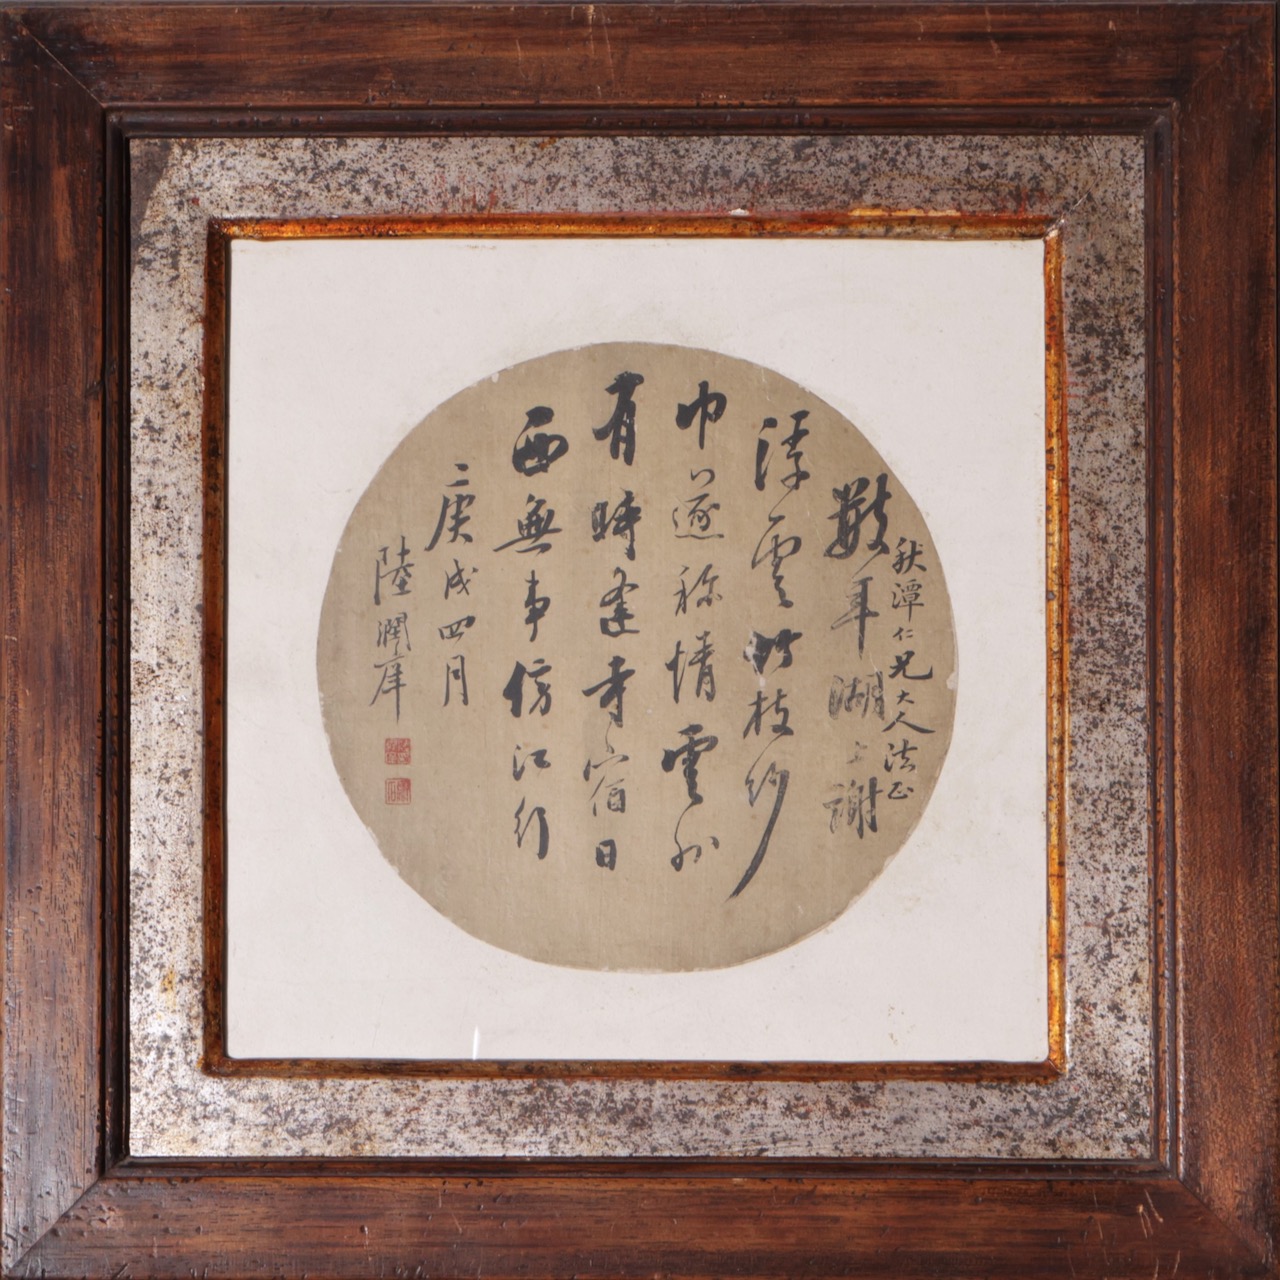 秋潭仁兄大人法正
數年湖上謝
浮雲竹枝紗
巾遂称情雲外
有時逢寺宿日
西無事傍江行
庚戌四月
陸潤庠